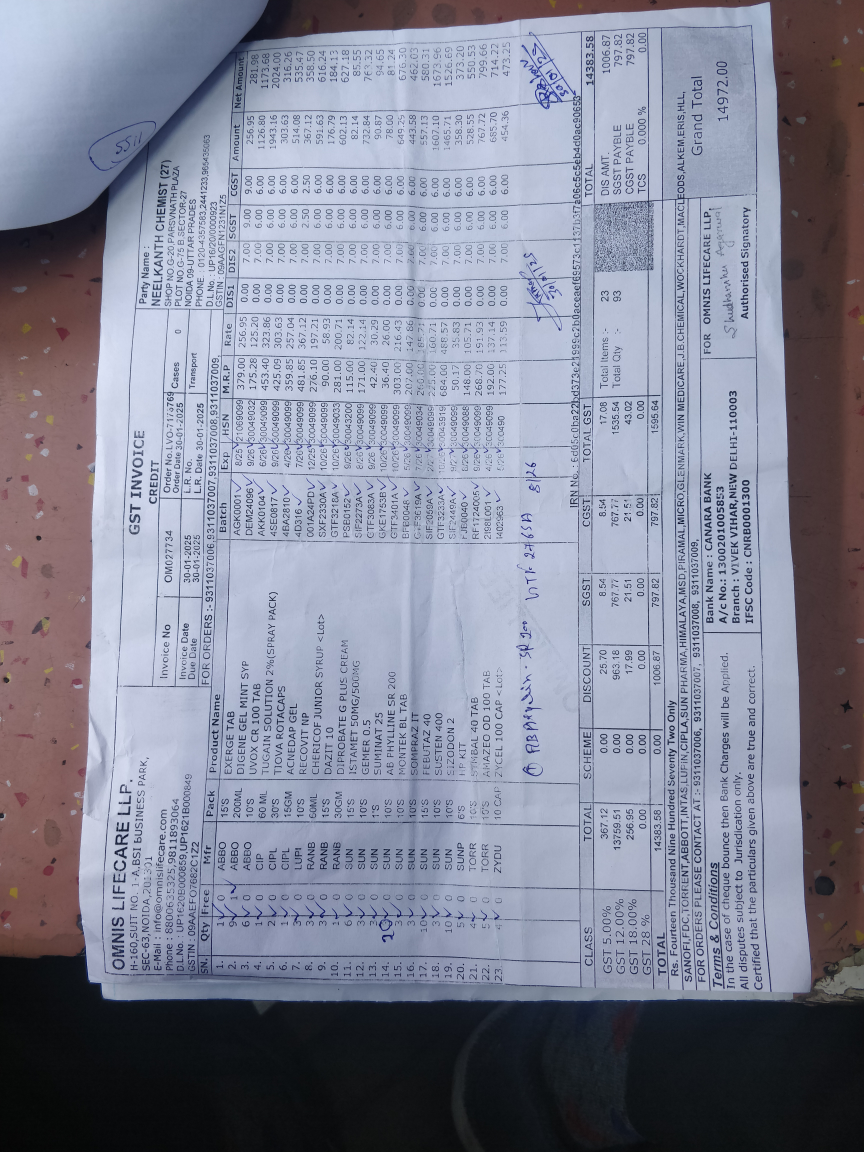 5511
GST INVOICE
OMNIS LIFECARE LLP.
H-160,SUIT NO. 1-A,BSI BUSINESS PARK,
SEC-63,NOIDA,201301
E-Mail : info@omnislifecare.com
Phone : 8800635325,9811893064
D.L.No : UP1620B000859,UP1621B000849
GSTIN : 09AAEFO7682C1Z2
CREDIT
Invoice No OM027734 Order No LVO-
Order Date 30-01-2025
Cases 0
Invoice Date 30-01-2025 L.R. No. Transport
Due Date 30-01-2025 L.R. Date 30-01-2025
FOR ORDERS :- 9311037006,9311037007,9311037008,9311037009,
Party Name :
NEELKANTH CHEMIST (27)
SHOP NO.G-20,PARSVNATH PLAZA
PLOT NO.G-75 B,SECTOR-27
NOIDA 09-UTTAR PRADES
PHONE : 0120-4357583,2441233,
D.L.No : UP16/20/0000923,
GSTIN : 09AAGFN1231N1Z5
SN. Qty Free Mfr Pack Product Name Batch Exp HSN M.R.P Rate DIS1 DIS2 SGST CGST Amount Net Amount
1. 1 0 ABBO 15'S EXERGE TAB AGK0001 8/25 21069099 379.00 256.95 0.00 7.00 9.00 9.00 256.95 281.98
2. 9 1 ABBO 200ML DIGENE GEL MINT SYP DEM24096 9/26 30049032 175.28 125.20 0.00 7.00 6.00 6.00 1126.80 1173.68
3. 6 0 ABBO 10'S UVOX CR 100 TAB AKK0104 6/26 30049099 453.40 323.86 0.00 7.00 6.00 6.00 1943.16 2024.00
4. 1 0 CIP 60 ML TUGAIN SOLUTION 2%(SPRAY PACK) 4SE0817 9/26 30049099 425.09 303.63 0.00 7.00 6.00 6.00 303.63 316.26
5. 2 0 CIPL 30'S TIOVA ROTACAPS 4BA2810 4/26 30049099 359.85 257.04 0.00 7.00 6.00 6.00 514.08 535.47
6. 1 0 CIPL 15GM ACNEDAP GEL 4D316 7/26 30049099 481.85 367.12 0.00 7.00 2.50 2.50 367.12 358.50
7. 3 0 LUPI 10'S RECOVIT NP 001A24PD 12/25 30049099 276.10 197.21 0.00 7.00 6.00 6.00 591.63 616.24
8. 3 0 RANB 60ML CHERICOF JUNIOR SYRUP <Lot> SSF2330A 10/26 30049099 90.00 58.93 0.00 7.00 6.00 6.00 176.79 184.13
9. 3 0 RANB 15'S DAZIT 10 GTF3218A 10/26 30049033 281.00 200.71 0.00 7.00 6.00 6.00 602.13 627.18
10. 1 0 RANB 30GM DIPROBATE G PLUS CREAM PSB0152 9/26 30043200 115.00 82.14 0.00 7.00 6.00 6.00 82.14 85.55
11. 6 0 SUN 15'S ISTAMET 50MG/500MG SIF2273A 8/26 30049099 171.00 122.14 0.00 7.00 6.00 6.00 732.84 763.32
12. 3 0 SUN 10'S GEMER 0.5 GTF3083A 9/26 30049099 42.40 30.29 0.00 7.00 6.00 6.00 90.87 94.65
13. 3 0 SUN 1'S SUMINAT 25 GKE1753B 10/26 30049099 36.40 26.00 0.00 7.00 6.00 6.00 78.00 81.24
14. 3 0 SUN 10'S AB PHYLLINE SR 200 GTF3401A 10/26 30049099 303.00 216.43 0.00 7.00 6.00 6.00 649.25 676.30
15. 3 0 SUN 10'S MONTEK BL TAB BFB0048 30049099 207.00 147.86 0.00 7.00 6.00 6.00 443.58 462.03
16. 3 0 SUN 10'S SOMPRAZ IT 185.71 0.00 7.00 6.00 6.00 557.13 580.31
17. 10 0 SUN 15'S FEBUTAZ 40 SIF2059A 30049099 225.00 160.71 0.00 7.00 6.00 6.00 1607.10 1673.96
18. 3 0 SUN 10'S SUSTEN 400 GTF3233A 684.00 488.57 0.00 7.00 6.00 6.00 1465.71 1526.69
19. 10 0 SUN 10'S SIZODON 2 SIF2449A 30049099 50.17 35.83 0.00 7.00 6.00 6.00 358.30 373.20
20. 5 0 SUNP 6'S HP KIT 148.00 105.71 0.00 7.00 6.00 6.00 528.55 550.53
21. 4 0 TORR 30049099 268.70 191.93 0.00 7.00 6.00 6.00 767.72 799.66
22. 5 0 TORR AMAZEO OD 100 TAB 2R8EL001 192.00 137.14 0.00 7.00 6.00 6.00 685.70 714.22
23. 4 0 ZYDU 10 CAP ZYCEL 100 CAP <Lot> 177.25 113.59 0.00 7.00 6.00 6.00 454.36 473.25
8/26
CLASS TOTAL SCHEME DISCOUNT SGST CGST TOTAL GST
GST 5.00% 367.12 0.00 25.70 8.54 8.54 17.08
GST 12.00% 13759.51 0.00 963.18 767.77 767.77 1535.54
GST 18.00% 256.95 0.00 17.99 21.51 21.51 43.02
GST 28 % 0.00 0.00 0.00 0.00 0.00 0.00
TOTAL 14383.58 0.00 1006.87 797.82 797.82 1595.64
Total Items :- 23
Total Qty :- 93
TOTAL 14383.58
DIS AMT. 1006.87
SGST PAYBLE 797.82
CGST PAYBLE 797.82
TCS 0.000 % 0.00
Rs. Fourteen Thousand Nine Hundred Seventy Two Only
SANOFI,FDC,TORRENT,ABBOTT,INTAS,LUPIN,CIPLA,SUN PHARMA,HIMALAYA,MSD,PIRAMAL,MICRO,GLENMARK,WIN MEDICARE,J.B.CHEMICAL,WOCKHARDT,MACLEODS,ALKEM,ERIS,HLL,
FOR ORDERS PLEASE CONTACT AT :- 9311037006, 9311037007, 9311037008, 9311037009,
Grand Total
14972.00
Terms & Conditions
In the case of cheque bounce then Bank Charges will be Applied.
All disputes subject to Jurisdication only.
Certified that the particulars given above are true and correct.
Bank Name : CANARA BANK
A/c No.: 1300201005853
Branch : VIVEK VIHAR,NEW DELHI-110003
IFSC Code : CNRB0001300
FOR OMNIS LIFECARE LLP,
Authorised Signatory